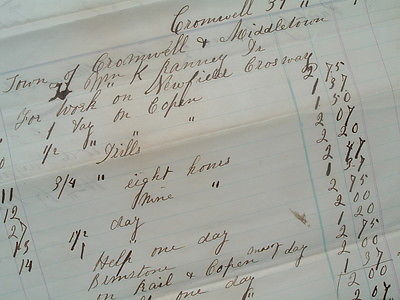 Cromwell 31 "
Town of Cromwell & Middletown
Wm K Ranney Jr
For work on Newfield Crosway 2 75
1 Day on Copen 1 37
1/2 " " " 1 50
" Drills 2 07
3/4 " eight hours 2 20
11 Nine " 2 47
12 1/2 day 1 37
27 1 " 2 75
15 Help one day 2 00
14 Brimstone 1 20
on Rail & Copen day 2 75
one day 2 00
1 37
2 00
2 07